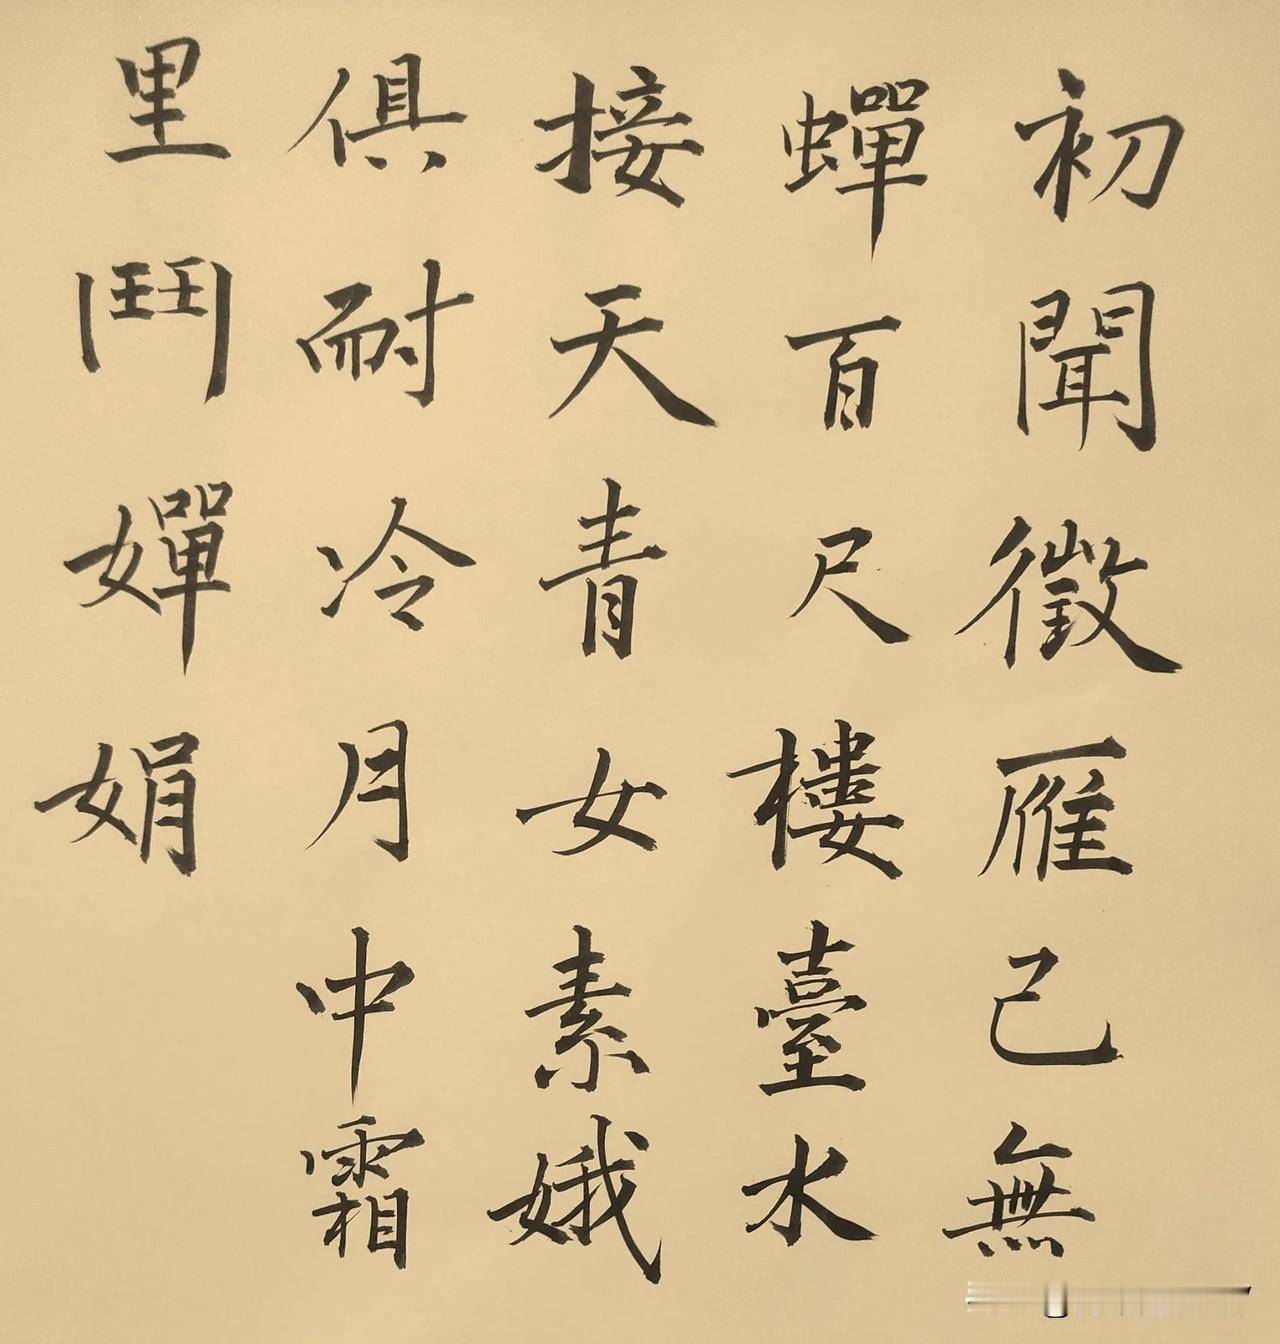 初聞徵雁己無
蟬百尺樓臺水
接天青女素娥
俱耐冷月中霜
里鬥嬋娟